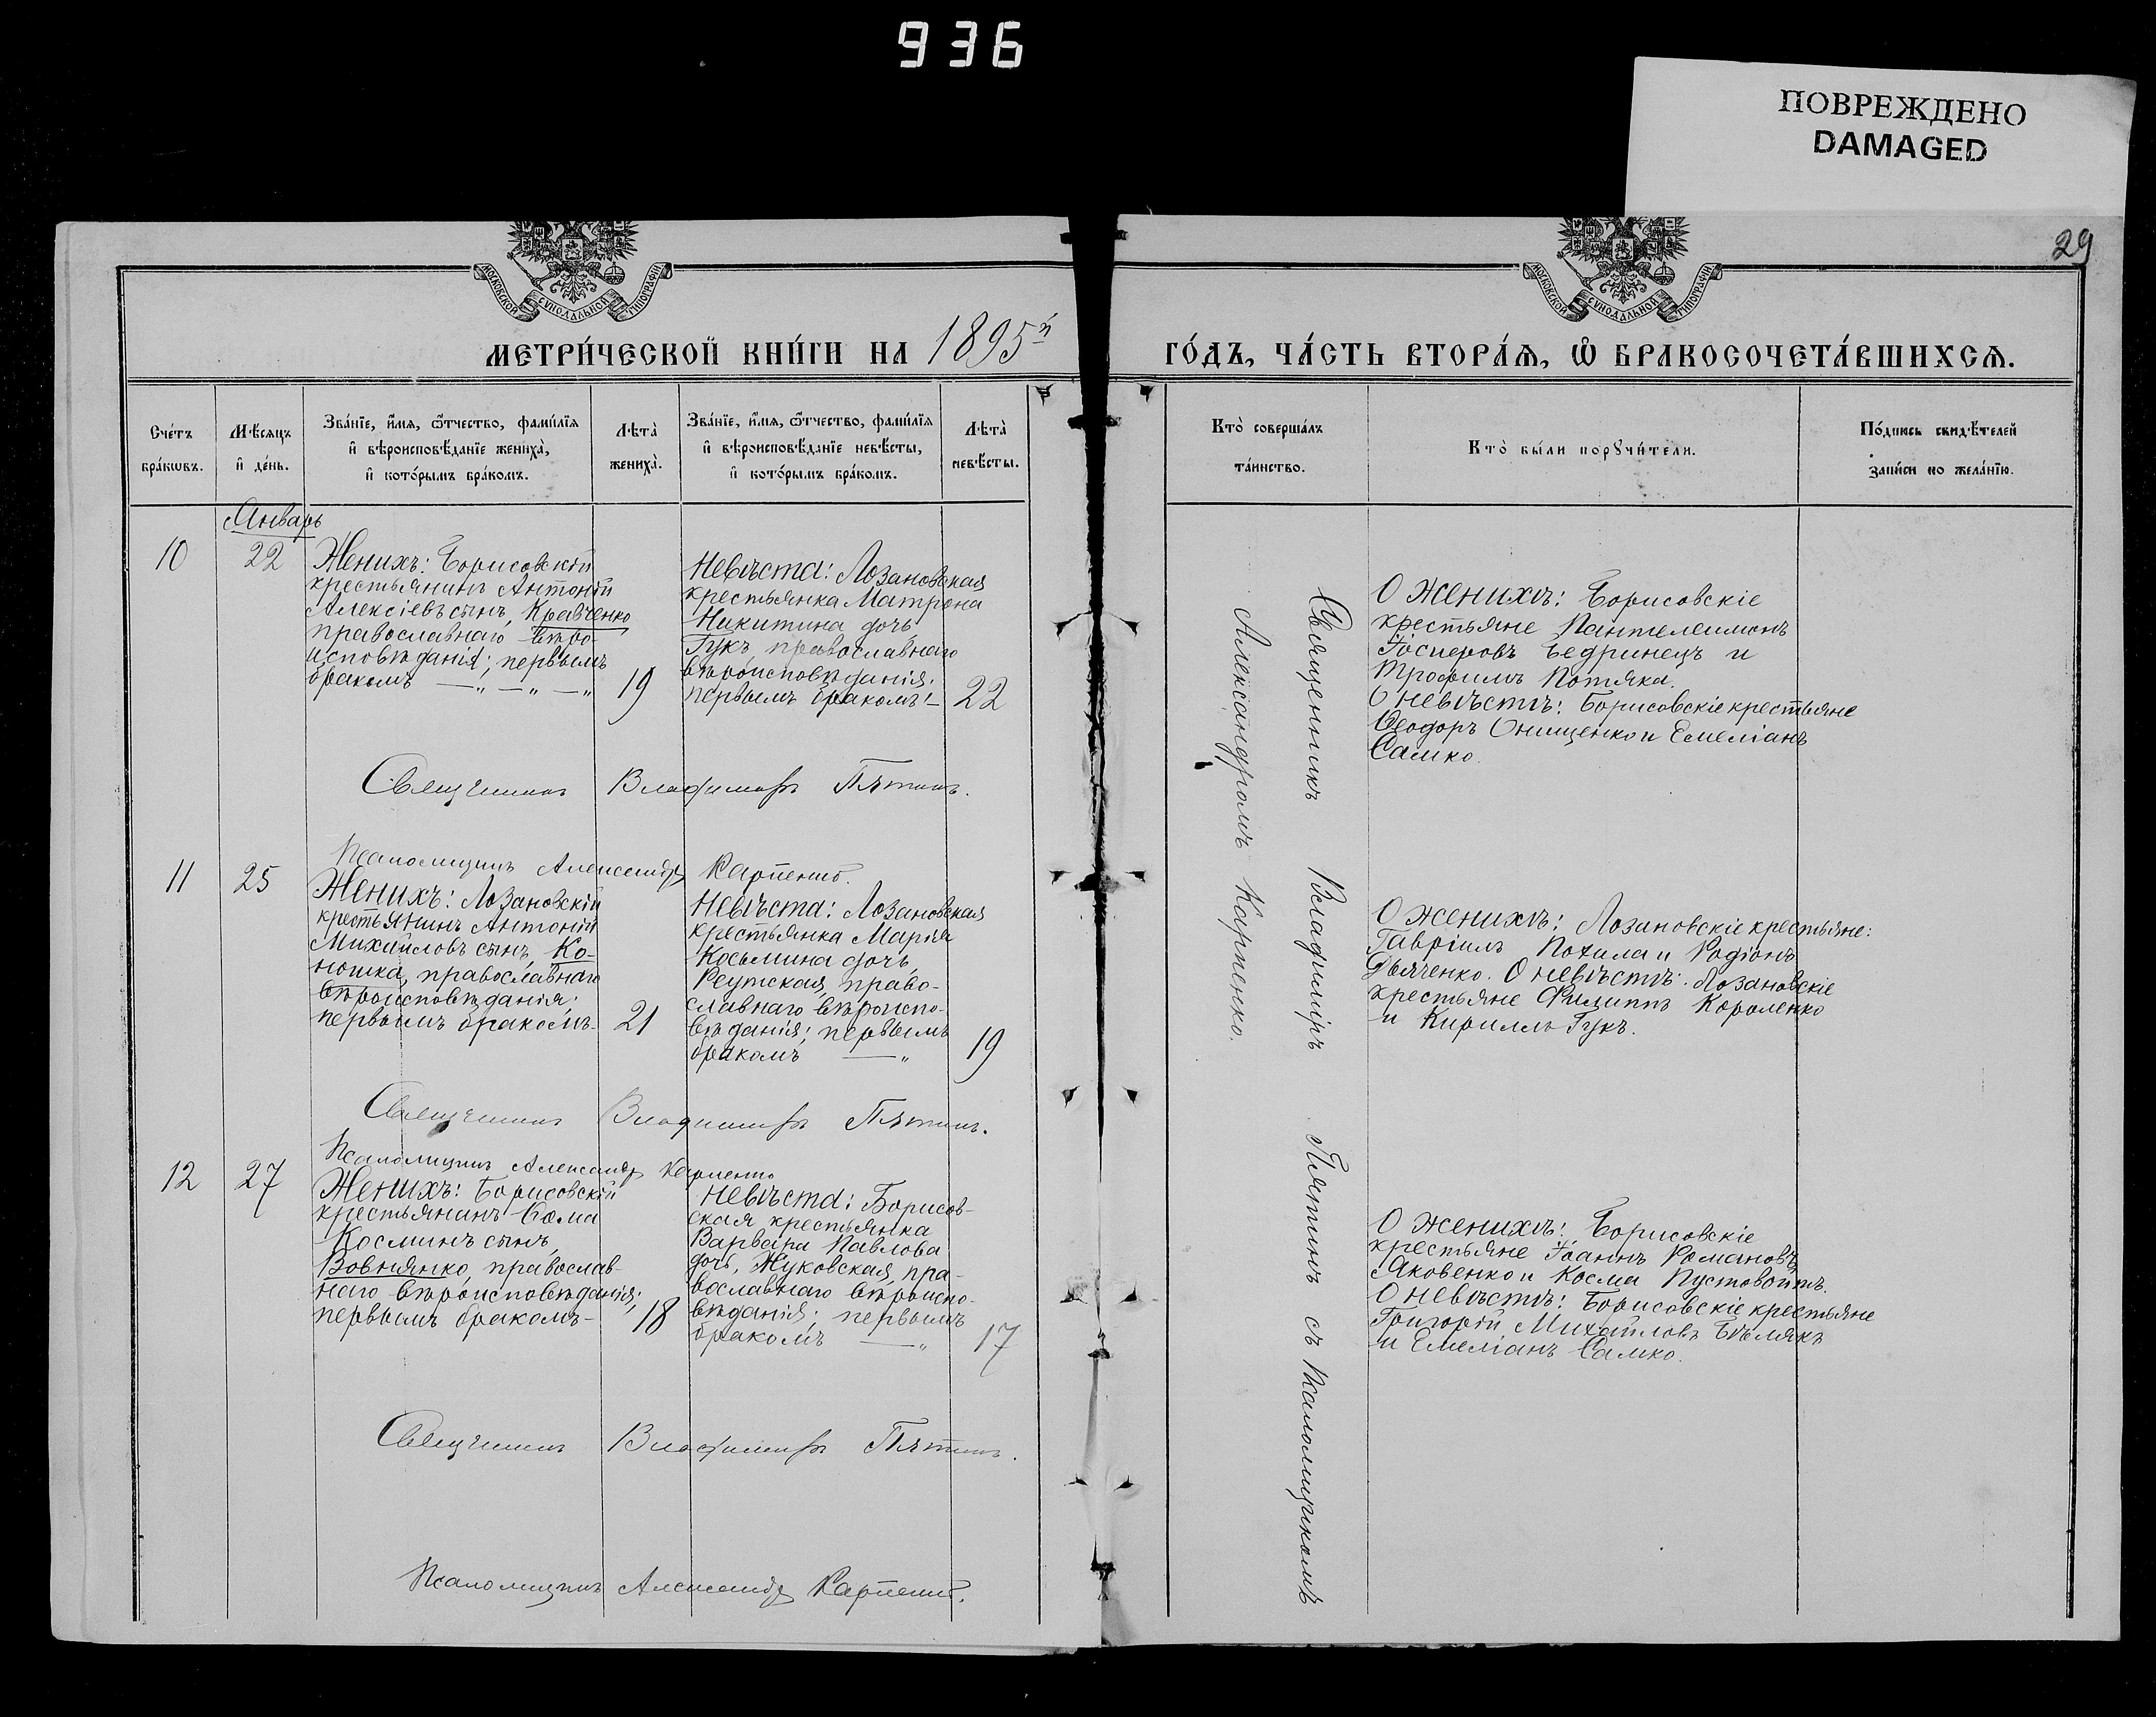 936
ПОВРЕЖДЕНО
DAMAGED
29
МОСКОВСКОЙ СѴНОДАЛЬНОЙ ТИПОГРАФІИ
МОСКОВСКОЙ СѴНОДАЛЬНОЙ ТИПОГРАФІИ
МЕТРИ́ЧЕСКОЙ КНИ́ГИ НА 1895й
ГО́ДЪ, ЧА́СТЬ ВТОРА́Ѧ, Ѡ҆ БРАКОСОЧЕТА́ВШИХСѦ.
Сче́тъ
бра́кѡвъ.
Мѣ́сѧцъ
и҆ де́нь.
Зва́нїе, и҆́мѧ, ѻ҆́тчество, фами́лїѧ
и҆ вѣроисповѣ́данїе жениха̀,
и҆ кото́рымъ бра́комъ.
Лѣта̀
жениха̀.
Зва́нїе, и҆́мѧ, ѻ҆́тчество, фами́лїѧ
и҆ вѣроисповѣ́данїе невѣ́сты,
и҆ кото́рымъ бра́комъ.
Лѣта̀
невѣ́сты.
Кто̀ соверша́лъ
та́инство.
Кто̀ бы́ли порꙋчи́тели.
По́дпись свидѣ́телей
за́писи по жела́нїю.
Январь
10
22
Женихъ: Борисовскій
крестьянинъ Антоній
Алексіевъ сынъ, Кравченко
православнаго вѣро-
исповѣданія; первымъ
бракомъ — „ — „ — „
19
Невѣста: Лозановская
крестьянка Матрона
Никитина дочь
Гукъ, православнаго
вѣроисповѣданія;
первымъ бракомъ! —
22
О женихѣ: Борисовскіе
крестьяне Пантелеимонъ
Бедринецъ и
Трофимъ Потяка.
О невѣстѣ: Борисовскіе крестьяне
Ѳеодоръ Онищенко и Емеліанъ
Самко.
Священникъ Владиміръ Пятинъ.
Псаломщикъ Александръ Карпенко.
11
25
Женихъ: Лозановскій
крестьянинъ Антоній
Михайловъ сынъ, Ко-
ношка, православнаго
вѣроисповѣданія;
первымъ бракомъ-
21
Невѣста: Лозановская
крестьянка Марія
Косьмина дочь
Реутская, право-
славнаго вѣроиспо-
вѣданія; первымъ
бракомъ — „
19
О женихѣ: Лозановскіе крестьяне:
Гавріилъ Похила и Родіонъ
Дьяченко. О невѣстѣ: Лозановскіе
крестьяне Филиппъ Короленко
и Кириллъ Гукъ.
Священникъ Владиміръ Пятинъ.
Псаломщикъ Александръ Карпенко
12
27
Женихъ: Борисовскій
крестьянинъ Ѳома
Косминъ сынъ,
Вовнянко, православ-
наго вѣроисповѣданія;
первымъ бракомъ-
18
Невѣста: Борисов-
ская крестьянка
Варвара Павлова
дочь, Жуковская, пра-
вославнаго вѣроиспо-
вѣданія; первымъ
бракомъ — „
17
О женихѣ: Борисовскіе
крестьяне Іоаннъ Романовъ
Яковенко и Косма Пустовойтъ.
О невѣстѣ: Борисовскіе крестьяне
Григорій Михайловъ Бѣлякъ
и Емеліанъ Самко.
Священникъ Владиміръ Пятинъ.
Псаломщикъ Александръ Карпенко.
Священникъ Владиміръ Пятинъ съ Псаломщикомъ
Александромъ Карпенко.